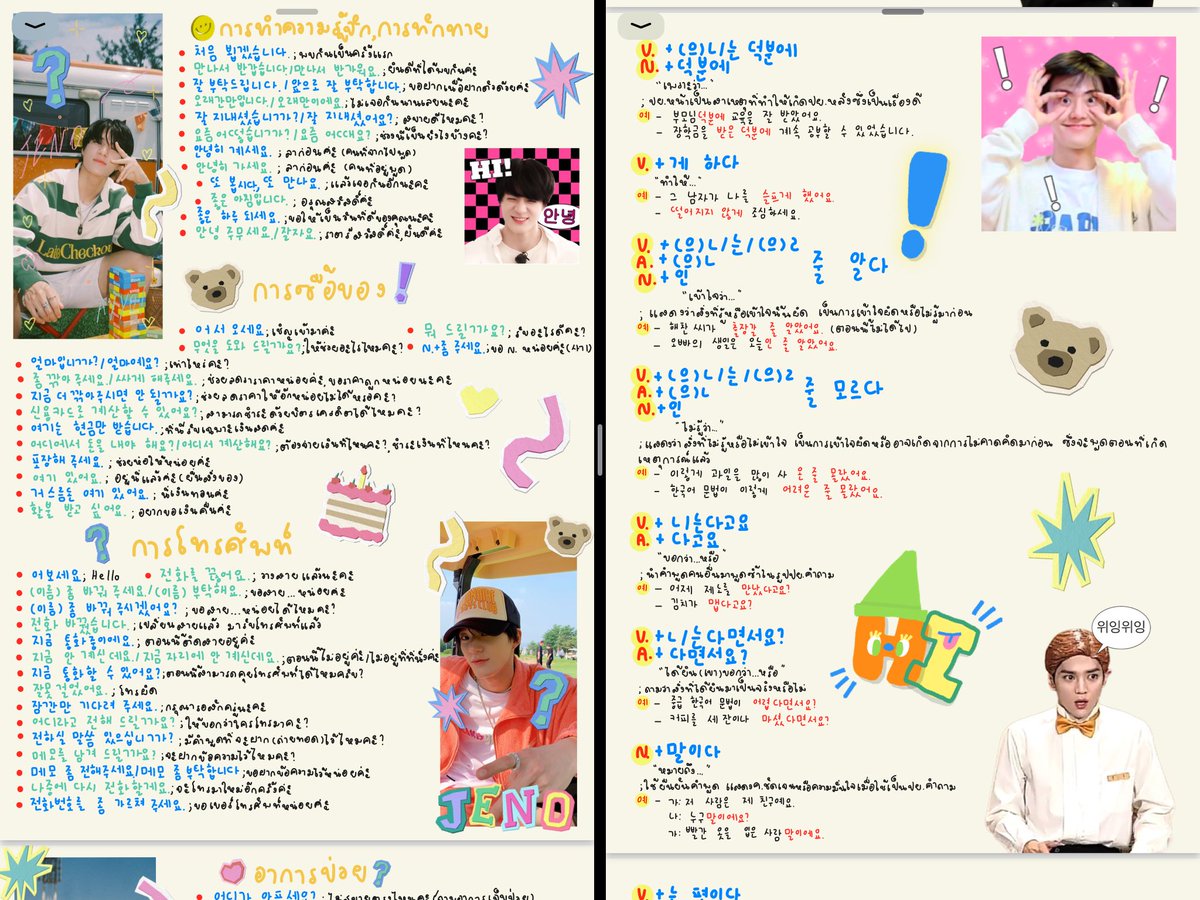 การทำความรู้จัก, การทักทาย
처음 뵙겠습니다. ; พบกันเป็นครั้งแรก
만나서 반갑습니다/만나서 반가워요. ; ยินดีที่ได้พบกันค่ะ
잘 부탁드립니다. / 앞으로 잘 부탁합니다. ; ขอฝากเนื้อฝากตัวด้วยค่ะ
오래간만입니다./오래만이에요. ; ไม่เจอกันนานเลยนะคะ
잘 지내셨습니까?/잘 지내셨어요? ; สบายดีไหมคะ?
요즘 어떻습니까?/요즘 어때요? ; ช่วงนี้เป็นยังไงบ้างคะ?
안녕히 계세요. ; ลาก่อนค่ะ (คนที่จากไปพูด)
안녕히 가세요. ; ลาก่อนค่ะ (คนที่อยู่พูด)
또 봅시다, 또 만나요. ; แล้วเจอกันอีกนะคะ
좋은 아침입니다. ; อรุณสวัสดิ์ค่ะ
좋은 하루 되세요. ; ขอให้เป็นวันที่ดีของคุณนะคะ
안녕 주무세요/잘자요. ; ราตรีสวัสดิ์ค่ะ, ฝันดีค่ะ
HI!
안녕
Late Checkout
การซื้อของ!
어서 오세요. ; เชิญเข้ามาค่ะ
뭐 드릴까요? ; รับอะไรดีคะ?
무엇을 도와 드릴까요? ; ให้ช่วยอะไรไหมคะ?
N.+좀 주세요. ; ขอ N. หน่อยค่ะ(ครับ)
얼마입니까?/얼마예요? ; เท่าไหร่คะ?
좀 깎아 주세요./싸게 해주세요. ; ช่วยลดราคาหน่อยค่ะ, ขอราคาถูกหน่อยนะคะ
지금 더 깎아주시면 안 될까요? ; ช่วยลดราคาให้อีกหน่อยไม่ได้หรอคะ?
신용카드로 계산할 수 있어요? ; สามารถชำระด้วยบัตรเครดิตได้ไหมคะ?
여기는 현금만 받습니다. ; ที่นี่รับเฉพาะเงินสดค่ะ
어디에서 돈을 내야 해요?/어디서 계산해요? ; ต้องจ่ายเงินที่ไหนคะ?, ชำระเงินที่ไหนคะ?
포장해 주세요. ; ช่วยห่อให้หน่อยค่ะ
여기 있어요. ; อยู่นี่แล้วค่ะ (ยื่นสิ่งของ)
거스름돈 여기 있어요. ; นี่เงินทอนค่ะ
환불 받고 싶어요. ; อยากขอเงินคืนค่ะ
? การโทรศัพท์
여보세요; Hello
전화를 끊어요. ; วางสายแล้วนะคะ
(이름) 좀 바꿔 주세요/(이름) 부탁해요. ; ขอสาย... หน่อยค่ะ
(이름) 좀 바꿔 주시겠어요? ; ขอสาย...หน่อยได้ไหมคะ?
전화 바꿨습니다. ; เปลี่ยนสายแล้ว มารับโทรศัพท์แล้ว
지금 통화중이에요. ; ตอนนี้ติดสายอยู่ค่ะ
지금 안 계신데요./지금 자리에 안 계신데요. ; ตอนนี้ไม่อยู่ค่ะ/ไม่อยู่ที่ที่นั่งค่ะ
지금 통화할 수 있어요? ; ตอนนี้สามารถคุยโทรศัพท์ได้ไหมครับ?
잘못 걸었어요. ; โทรผิด
잠깐만 기다려 주세요. ; กรุณารอสักครู่นะคะ
어디라고 전해 드릴까요? ; ให้บอกว่าใครโทรมาคะ?
전하실 말씀 있으십니까? ; มีคำพูดที่จะฝาก(ถ่ายทอด)ไว้ไหมคะ?
메모를 남겨 드릴까요? ; จะฝากข้อความไว้ไหมคะ?
메모 좀 전해주세요/메모 좀 부탁합니다 ; ขอฝากข้อความไว้หน่อยค่ะ
나중에 다시 전화할게요. ; จะโทรมาใหม่อีกครั้งค่ะ
전화번호를 좀 가르쳐 주세요. ; ขอเบอร์โทรศัพท์หน่อยค่ะ
JENO
อาการป่วย ?
V. + (으)ㄴ/는 덕분에
N. + 덕분에
"เพราะว่า..."
; ปย.หน้าเป็นสาเหตุที่ทำให้เกิดปย.หลังซึ่งเป็นเรื่องดี
예 - 부모님덕분에 교육을 잘 받았어요.
- 장학금을 받은 덕분에 계속 공부할 수 있었습니다.
V. + 게 하다
"ทำให้..."
예 - 그 남자가 나를 슬프게 했어요.
- 떨어지지 않게 조심하세요.
V. + (으)ㄴ/는/(으)ㄹ
A. + (으)ㄴ
N. + 인
줄 알다
"เข้าใจว่า..."
; แสดงว่าสิ่งที่รู้หรือเข้าใจนั้นผิด เป็นการเข้าใจผิดหรือไม่รู้มาก่อน
예 - 해찬 씨가 출장갈 줄 알았어요. (ตอนนี้ไม่ได้ไป)
- 오빠의 생일은 오늘인 줄 알았어요.
V. + (으)ㄴ/는/(으)ㄹ
A. + (으)ㄴ
N. + 인
줄 모르다
"ไม่รู้ว่า..."
; แสดงว่าสิ่งที่ไม่รู้หรือไม่เข้าใจ เป็นการเข้าใจผิดหรืออาจเกิดจากการไม่คาดคิดมาก่อน ซึ่งจะพูดตอนที่เกิด
เหตุการณ์แล้ว
예 - 이렇게 과일을 많이 사 온 줄 몰랐어요.
- 한국어 문법이 이렇게 어려운 줄 몰랐어요.
V. + ㄴ/는다고요
A. + 다고요
"บอกว่า...หรือ"
; นำคำพูดคนอื่นมาพูดซ้ำในรูปปย.คำถาม
예 - 어제 제노를 만났다고요?
- 김치가 맵다고요?
V. + ㄴ/는다면서요?
A. + 다면서요?
"ได้ยิน(เขา)บอกว่า...หรือ"
; ถามว่าสิ่งที่ได้ยินมาเป็นจริงหรือไม่
예 - 중급 한국어 문법이 어렵다면서요?
- 커피를 세 잔이나 마셨다면서요?
HI
위잉위잉
N. + 말이다
"หมายถึง..."
예 - 가: 저 사람은 제 친구예요.
나: 누구말이에요?
가: 빨간 옷을 입은 사람말이에요.
V. + 는 편이다